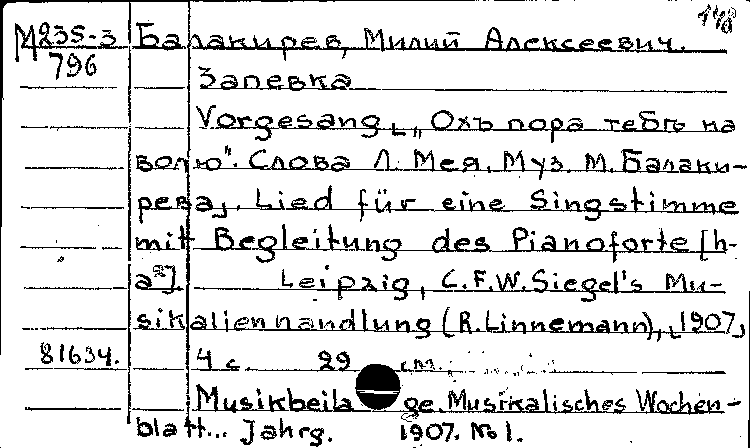 448
М235-3 Балакирев, Милий Алексеевич.
796 Запевка
Vorgesang [„Охъ пора тебѣ на
волю". Слова Л. Мея. Муз. М. Балаки-
рева]. Lied für eine Singstimme
mit Begleitung des Pianoforte [h-
a²]. Leipzig, C.F.W. Siegel's Mu-
sikalienhandlung (R. Linnemann), [1907]
81634. 4 с. 29 см.
Musikbeilage. Musikalisches Wochen-
blatt... Jahrg. 1907. No 1.